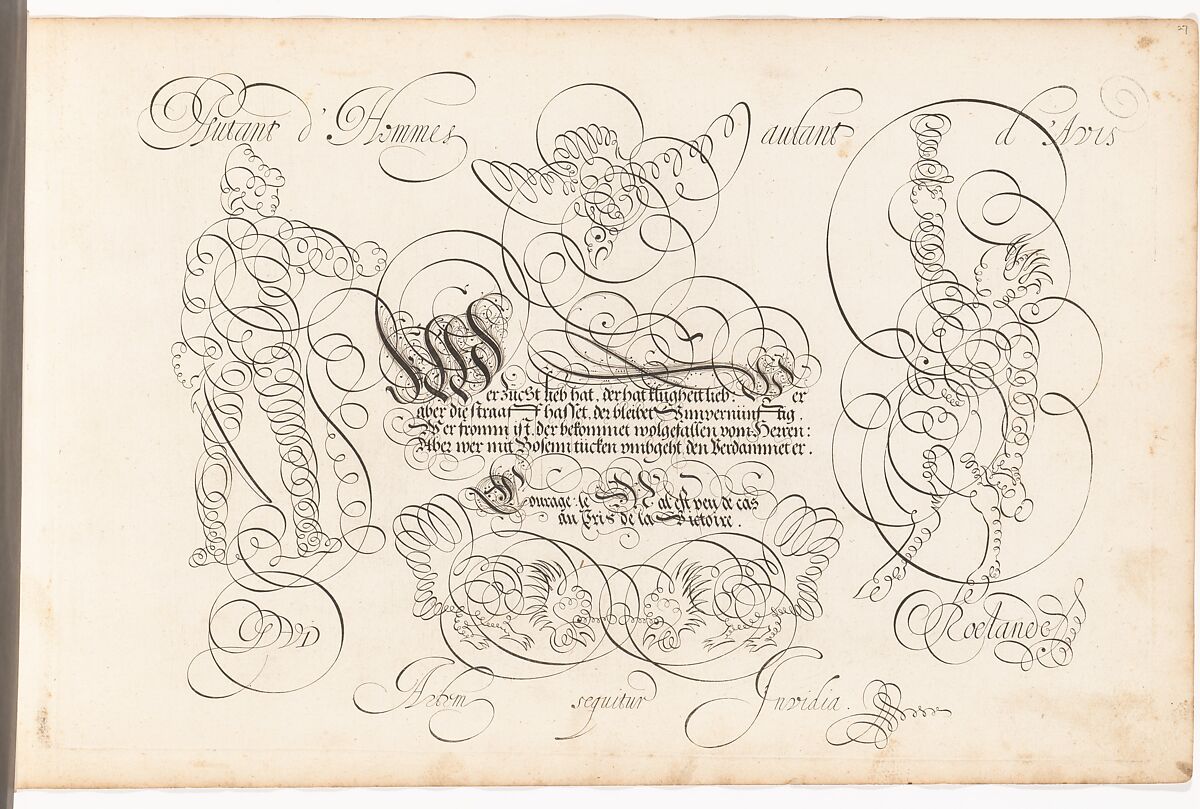 Autant d'Hommes autant d'Avis
Wer Zucht lieb hat, der hat klugheit lieb: Wer
aber die straaff hasset, der bleibet Unvernünftig.
Wer fromm ist, der bekommet wolgefallen vom Herren:
Aber wer mit Bosenn tücken umbgeht, den Verdammet er.
Courage: le Mal est peu de cas
au Pris de la Victoire.
Roelande
Artem sequitur Invidia.
27